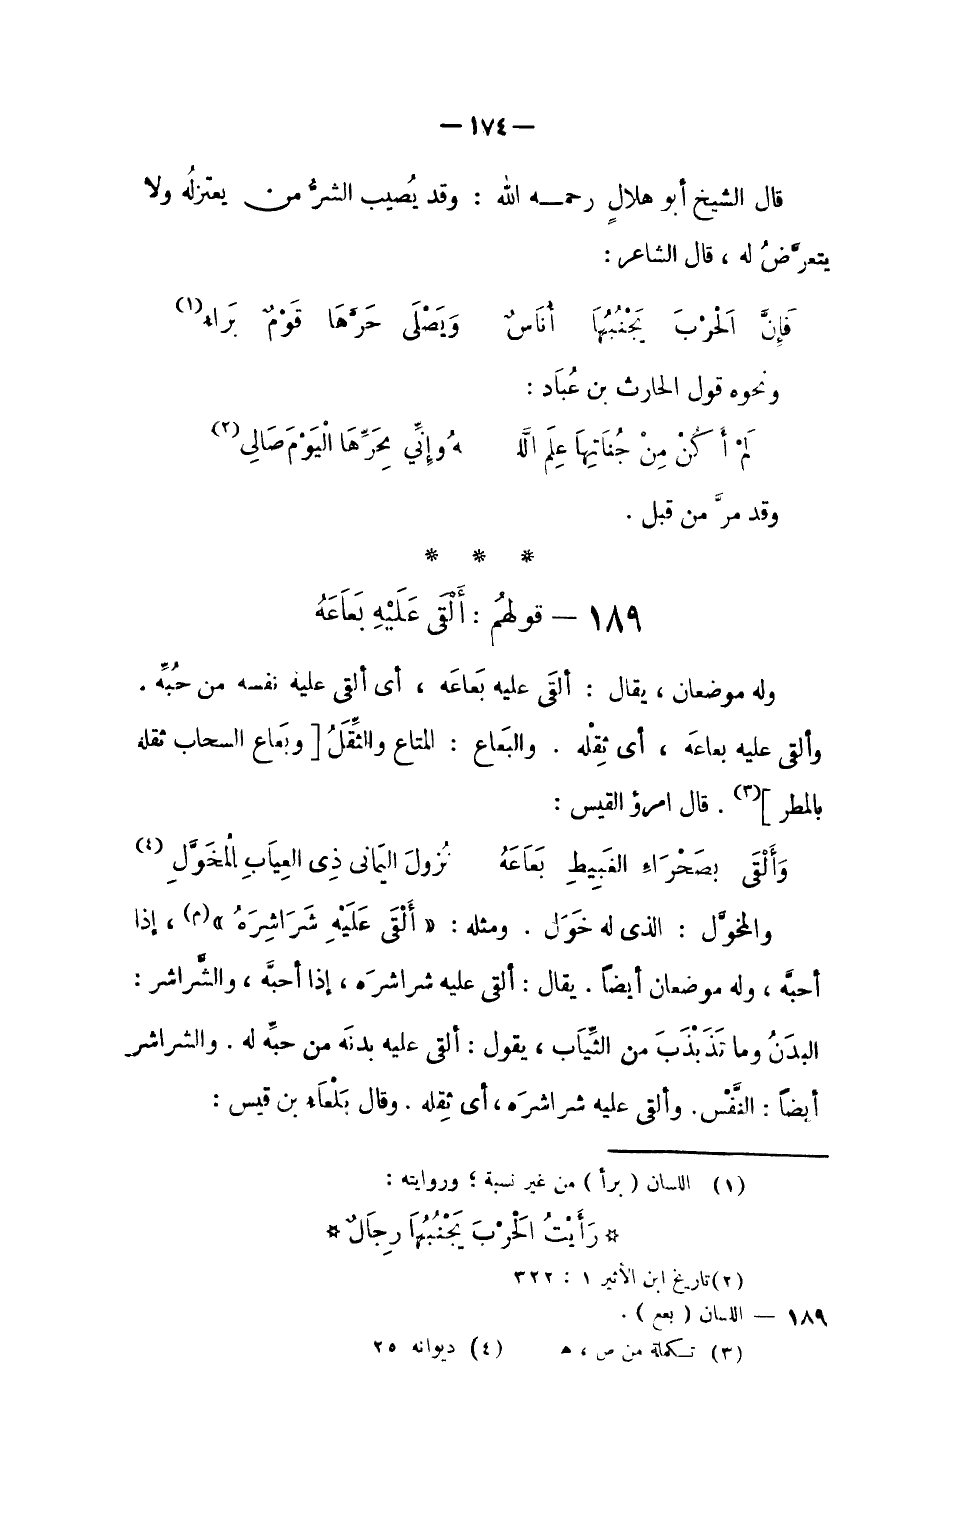 — ١٧٤ —
قال الشيخ أبو هلالٍ رحمـه الله : وقد يُصيب الشرُّ من يعتزلُه ولا
يتعرَّضُ له ، قال الشاعر :
فَإِنَّ الَحْرْبَ يَجْنُبُهَا أُنَاسٌ وَيَصْلَى حَرَّهَا قَوْمٌ بَرَاء(١)
ونحوه قول الحارث بن عُبَاد :
لَمْ أَكُنْ مِنْ جُنَاتِهَا عِلِمَ اللَّهُ وإِنِّي بِحَرِّهَا الْيَوْمَ صَالِي(٢)
وقد مرَّ من قبل .
* * *
١٨٩ — قولهُم : أَلْقَى عَلَيْهِ بَعَاعَهُ
وله موضعان ، يقال : ألقَى عليه بَعاعَه ، أى ألقى عليه نفسه من حُبِّه .
وألقى عليه بعاعَه ، أى ثِقْله . والبَعاع : المتاع والثِّقَلُ [ وبَعاع السحاب ثقله
بالمطر ](٣) . قال امرؤ القيس :
وَأَلْقَى بصَحْرَاءِ الغَبِيطِ بَعَاعَهُ نُزولَ اليَمانى ذِى العِيَابِ الْمُخَوَّلِ (٤)
والمخوَّل : الذى له خَوَل . ومثله : « أَلْقَى عَلَيْهِ شَرَاشِرَهُ »(م) ، إذا
أحبَّه ، وله موضعان أيضاً . يقال : ألقى عليه شراشرَه ، إذا أحبَّه ، والشَّراشر :
البدَنُ وما تَذَبْذَبَ من الثِّيَاب ، يقول : ألقى عليه بدنَه من حبِّه له . والشراشر
أيضاً : النَّفْس . وألقى عليه شراشرَه ، أى ثِقله . وقال بَلْعَاء بن قيس :
(١) اللسان ( برأ ) من غير نسبة ؛ وروايته :
* رَأَيْتُ الَحْرْبَ يَجْنُبُهَا رِجَالٌ *
(٢) تاريخ ابن الأثير ١ : ٣٢٢
١٨٩ — اللسان ( بعع ) .
(٣) تـكملة من ص ، هـ (٤) ديوانه ٢٥